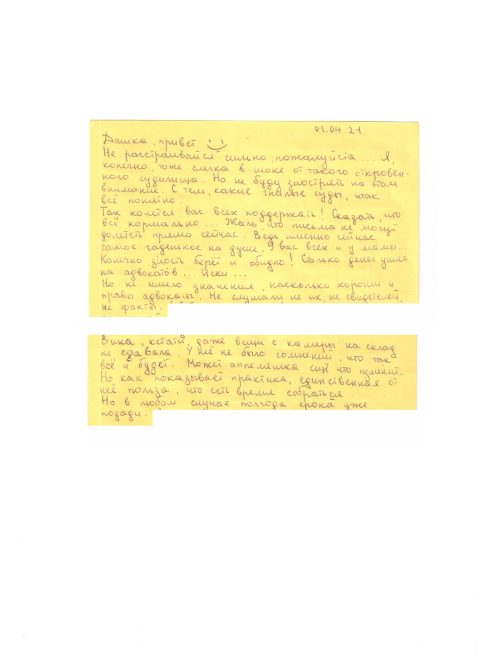 01.04.21.
Дашка, привет
Не расстраивайся сильно, пожалуйста... Я,
конечно, тоже слегка в шоке от такого откровен-
ного судилища. Но не буду заострять на этом
внимание. С тем, какие гнилые суды, итак
всё понятно.
Так хочется вас всех поддержать! Сказать, что
всё нормально... Жаль что письма не могут
долететь прямо сейчас. Ведь именно сейчас
самое гаденькое на душе. У вас всех и у мамы...
Конечно злость берёт и обидно! Столько денег ушло
на адвокатов.. Иски...
Но не имело значения, насколько хороши и
правы адвокаты. Не слушали не их, не свидетелей,
не факты.
Вика, кстати, даже вещи с камеры на склад
не сдавала. У неё не было сомнений, что так
всё и будет. Может апелляшка что изменит.
Но как показывает практика, единственная от
неё польза, что есть время собраться.
Но в любом случае полгода срока уже
позади.